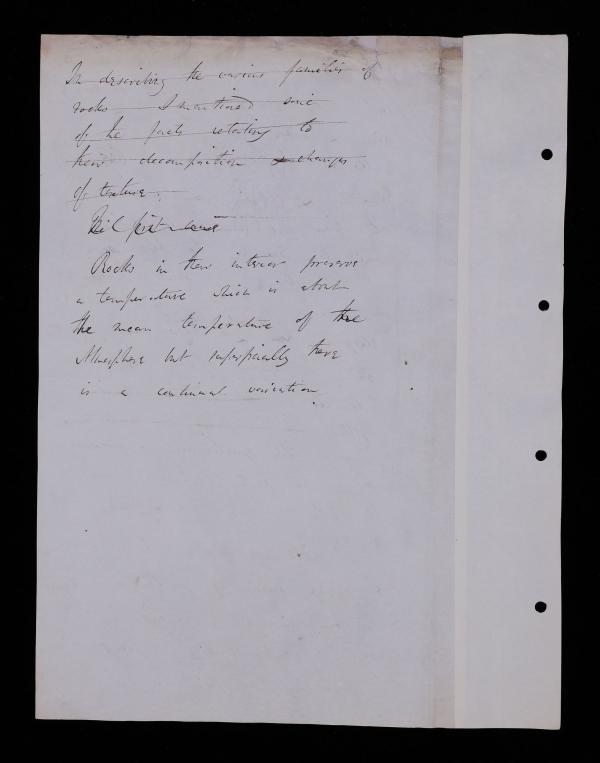 In describing the various families of
rocks I mentioned some
of the facts relating to
their decomposition & changes
of texture.
Rocks in their interior preserve
a temperature which is about
the mean temperature of the
Atmosphere but superficially there
is a continual variation